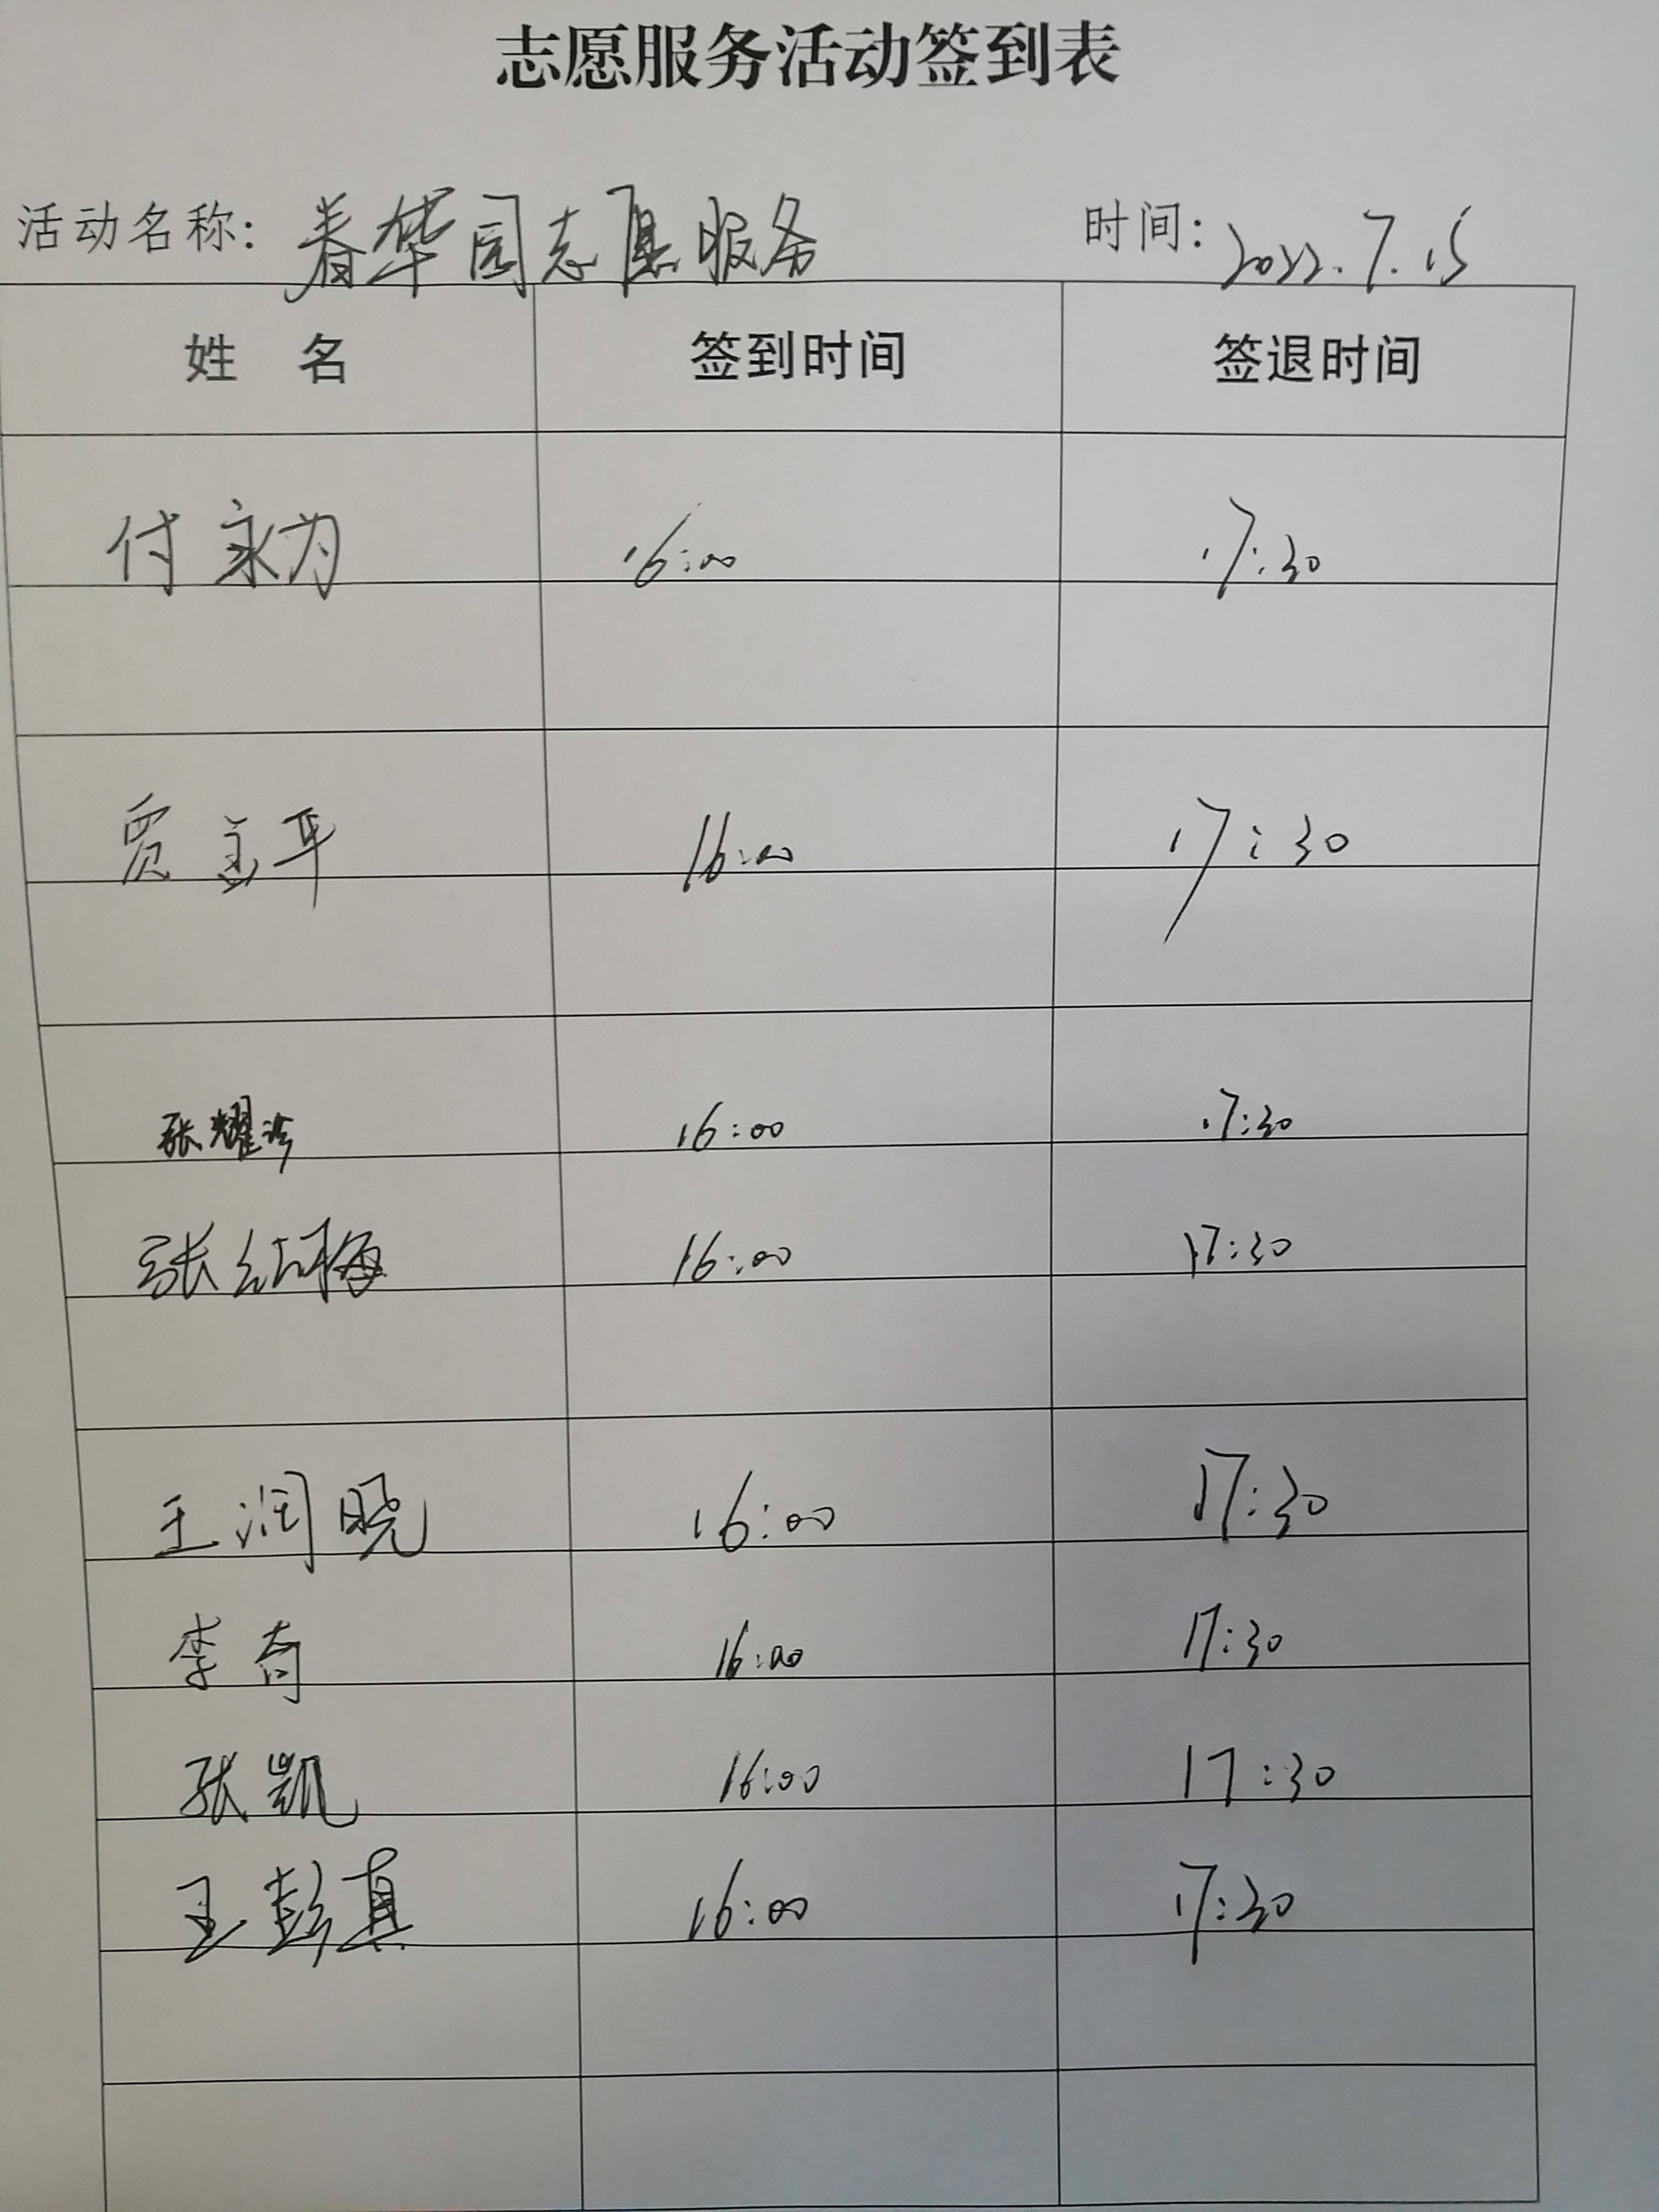 志愿服务活动签到表
活动名称：春华园志愿服务 时间：2022.7.15
姓 名 签到时间 签退时间
付永为 16:00 17:30
贾金平 16:00 17:30
张耀 16:00 17:30
张红梅 16:00 17:30
王润晓 16:00 17:30
李奇 16:00 17:30
张凯 16:00 17:30
王彭真 16:00 17:30